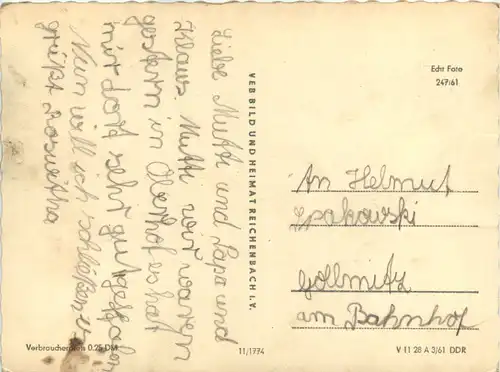 Liebe Mutti und Papa und
Klaus. Mutti wir waren
gestern in Oberhof es hat
mir dort sehr gut gefallen
Nun will ich schließen u.
grüßt Roswitha
VEB BILD UND HEIMAT REICHENBACH I. V.
Echt Foto
247/61
An Helmut
Spakowski
Gollmitz
am Bahnhof
Verbraucherpreis 0.25 DM
11/1774
V 11 28 A 3/61 DDR